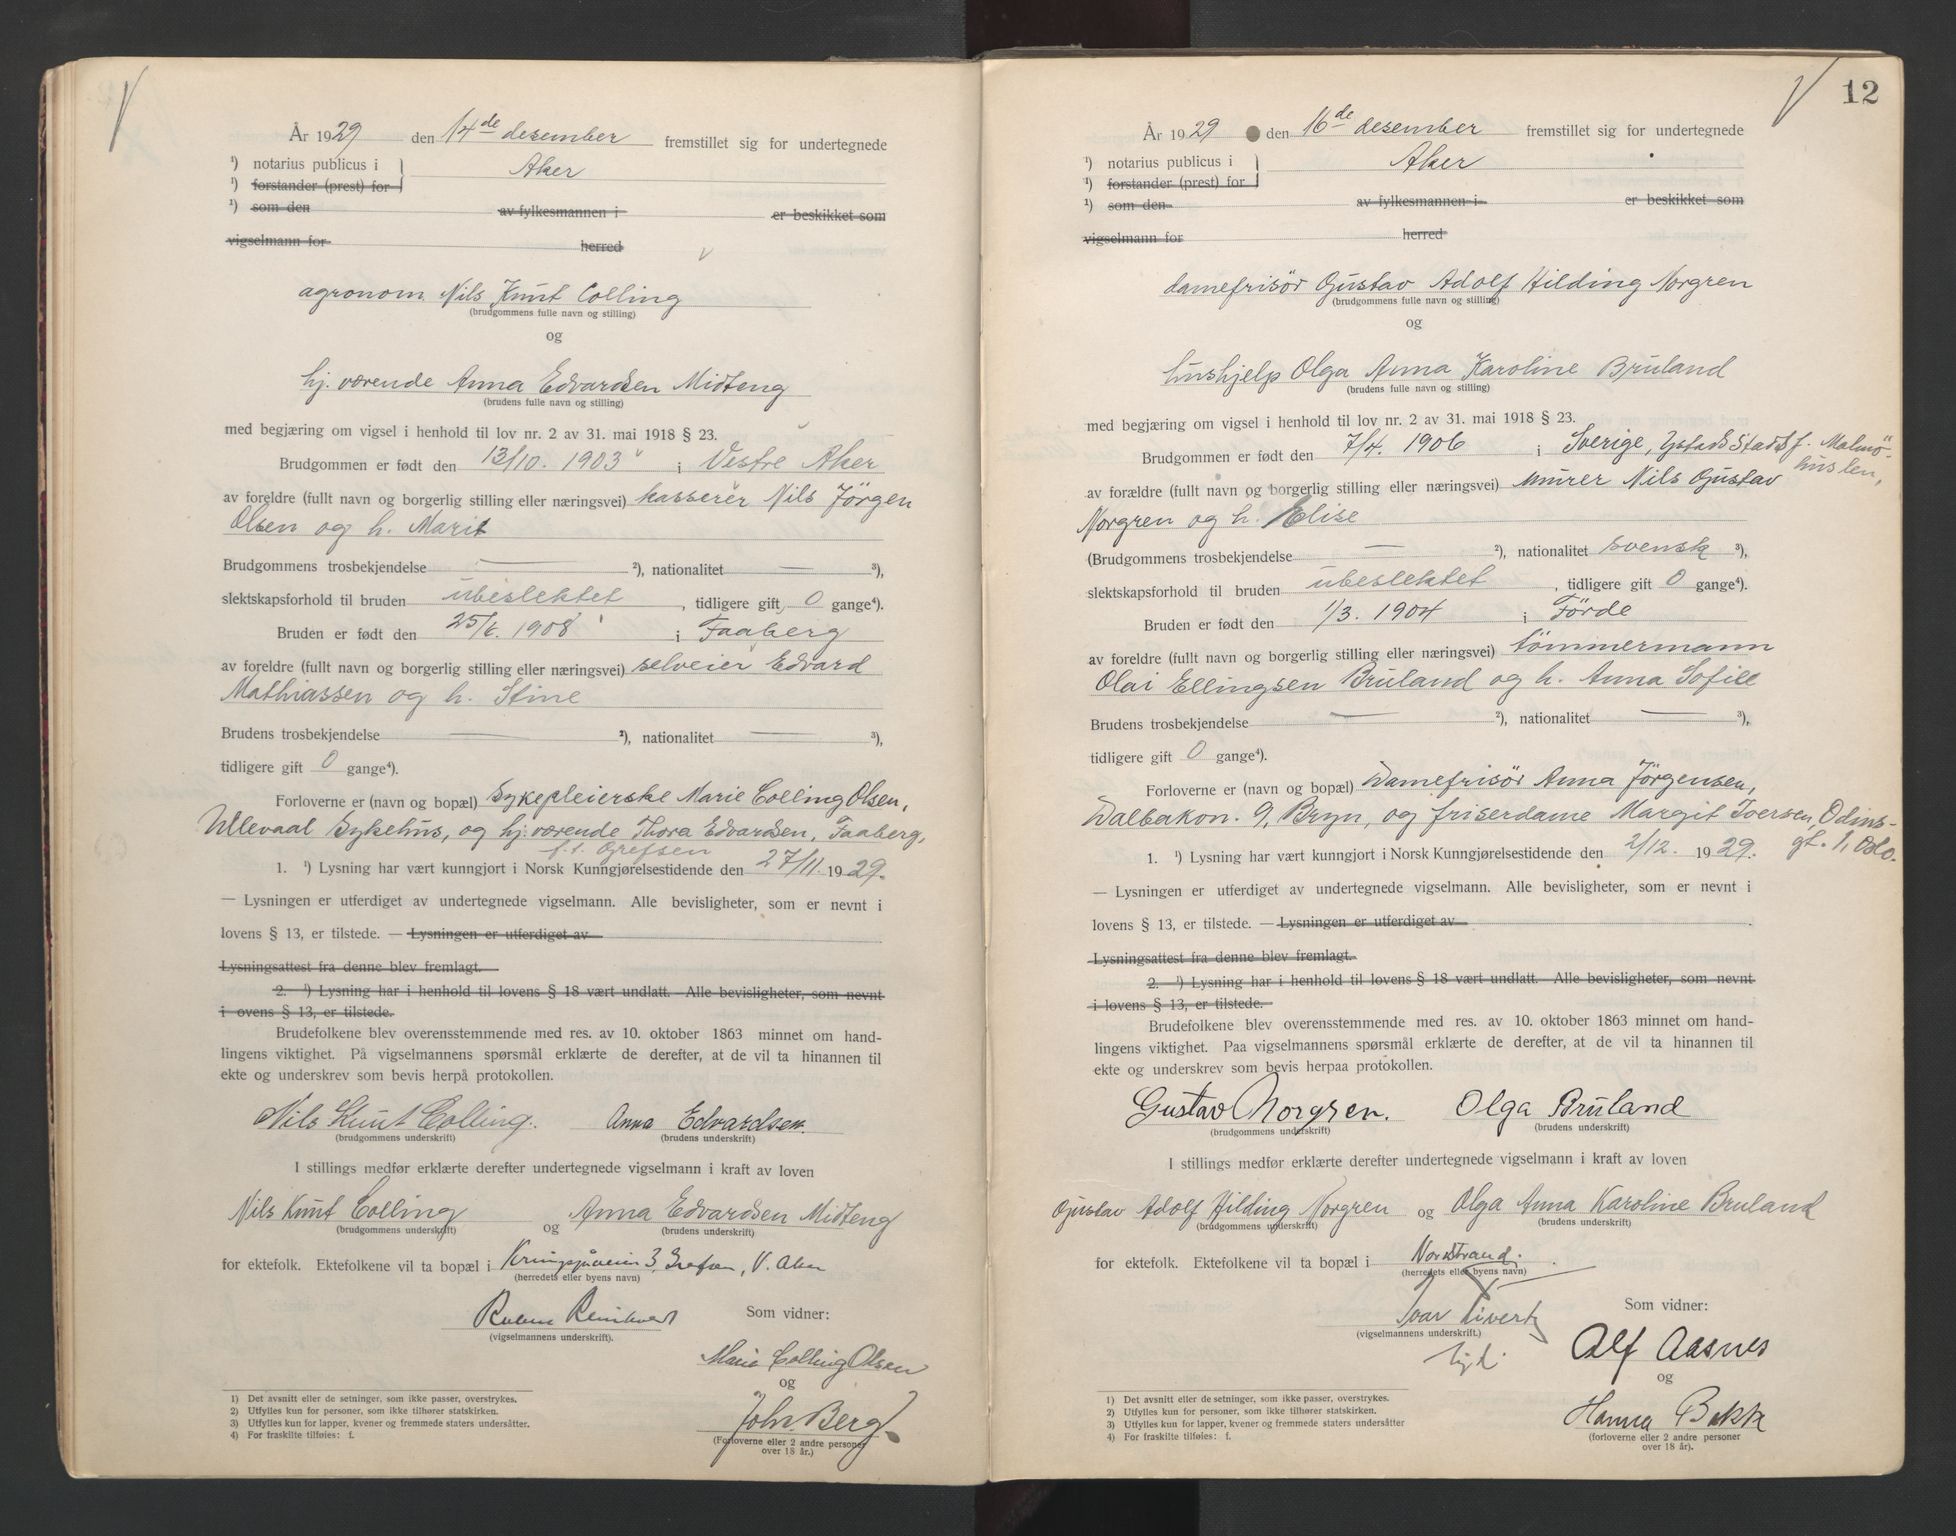 År 1929 den 14de desember fremstillet sig for undertegnede
¹) notarius publicus i } Aker
¹) forstander (prest) for
¹) som den av fylkesmannen i er beskikket som
vigselmann for herred
agronom Nils Knut Colling
(brudgommens fulle navn og stilling)
og
hj. værende Anna Edvardsen Midteng
(brudens fulle navn og stilling)
med begjæring om vigsel i henhold til lov nr. 2 av 31. mai 1918 § 23.
Brudgommen er født den 13/10. 1903 i Vestre Aker
av foreldre (fullt navn og borgerlig stilling eller næringsvei) kasserer Nils Jörgen
Olsen og h. Marit
Brudgommens trosbekjendelse — ²), nationalitet — ³),
slektskapsforhold til bruden ubeslektet, tidligere gift 0 gange⁴).
Bruden er født den 25/6. 1908 i Faaberg
av foreldre (fullt navn og borgerlig stilling eller næringsvei) selveier Edvard
Mathiassen og h. Stine
Brudens trosbekjendelse — ²), nationalitet — ³),
tidligere gift 0 gange⁴).
Forloverne er (navn og bopæl) Sykepleierske Marie Colling Olsen,
Ullevaal Sykehus, og hj. værende Thora Edvardsen, Faaberg,
f. t. Grefsen
1. ¹) Lysning har vært kunngjort i Norsk Kunngjørelsestidende den 27/11. 1929.
— Lysningen er utferdiget av undertegnede vigselmann. Alle bevisligheter, som er nevnt i
lovens § 13, er tilstede. — Lysningen er utferdiget av
Lysningsattest fra denne blev fremlagt.
2. ¹) Lysning har i henhold til lovens § 18 vært undlatt. Alle bevisligheter, som nevnt
i ovens § 13, er tilstede.
Brudefolkene blev overensstemmende med res. av 10. oktober 1863 minnet om hand-
lingens viktighet. På vigselmannens spørsmål erklærte de derefter, at de vil ta hinannen til
ekte og underskrev som bevis herpå protokollen.
Nils Knut Colling. Anna Edvardsen.
(brudgommens underskrift) (brudens underskrift)
I stillings medfør erklærte derefter undertegnede vigselmann i kraft av loven
Nils Knut Colling og Anna Edvardsen Midteng
(brudgommens underskrift) (brudens underskrift)
for ektefolk. Ektefolkene vil ta bopæl i Kringsjåveien 3, Grefsen, V. Aker
(herredets eller byens navn)
Som vidner:
(vigselmannens underskrift).
Marie Colling Olsen
og
John Berg
(Forloverne eller 2 andre personer
over 18 år.)
1) Det avsnitt eller de setninger, som ikke passer, overstrykes.
2) Utfylles kun for personer, som ikke tilhører statskirken.
3) Utfylles kun for lapper, kvener og fremmede staters undersåtter.
4) For fraskilte tilføies: f.
12
År 1929 den 16de desember fremstillet sig for undertegnede
¹) notarius publicus i } Aker
¹) forstander (prest) for
¹) som den av fylkesmannen i er beskikket som
vigselmann for herred
damefrisör Gustav Adolf Hilding Norgren
(brudgommens fulle navn og stilling)
og
hushjelp Olga Anna Karoline Bruland
(brudens fulle navn og stilling)
med begjæring om vigsel i henhold til lov nr. 2 av 31. mai 1918 § 23.
Brudgommen er født den 7/4. 1906 i Sverige, Ystads Stadsf. Malmö-
huslen,
av forældre (fullt navn og borgerlig stilling eller næringsvei) murer Nils Gustav
Norgren og h. Elise
(Brudgommens trosbekjendelse — ²), nationalitet svensk ³),
slektskapsforhold til bruden ubeslektet, tidligere gift 0 gange⁴).
Bruden er født den 1/3. 1904 i Förde
av foreldre (fullt navn og borgerlig stilling eller næringsvei) tömmermann
Olai Ellingsen Bruland og h. Anna Sofie
Brudens trosbekjendelse — ²), nationalitet — ³),
tidligere gift 0 gange⁴).
Forloverne er (navn og bopæl) Damefrisör Anna Jörgensen,
Dalbakkn. 9, Bryn, og friserdame Margit Iversen, Odins-
gt. 1, Oslo.
1. ¹) Lysning har vært kunngjort i Norsk Kunngjørelsestidende den 2/12. 1929.
— Lysningen er utferdiget av undertegnede vigselmann. Alle bevisligheter, som er nevnt i
lovens § 13, er tilstede. — Lysningen er utferdiget av
Lysningsattest fra denne blev fremlagt.
2. ¹) Lysning har i henhold til lovens § 18 vært undlatt. Alle bevisligheter, som nevnt
i lovens § 13, er tilstede.
Brudefolkene blev overensstemmende med res. av 10. oktober 1863 minnet om hand-
lingens viktighet. Paa vigselmannens spørsmål erklærte de derefter, at de vil ta hinannen til
ekte og underskrev som bevis herpaa protokollen.
Gustav Norgren. Olga Bruland
(brudgommens underskrift) (brudens underskrift)
I stillings medfør erklærte derefter undertegnede vigselmann i kraft av loven
Gustav Adolf Hilding Norgren og Olga Anna Karoline Bruland
(brudgommens underskrift) (brudens underskrift)
for ektefolk. Ektefolkene vil ta bopæl i Nordstrand.
(herredets eller byens navn)
Som vidner:
Ivar
(vigselmannens underskrift.)
Alf Aasnes
og
Hanna Bakke
(forloverne eller 2 andre personer
over 18 år).
1) Det avsnitt eller de setninger, som ikke passer, overstrykes.
2) Utfylles kun for personer, som ikke tilhører statskirken.
3) Utfylles kun for lapper, kvener og fremmede staters undersåtter
4) For fraskilte tilføies: f.